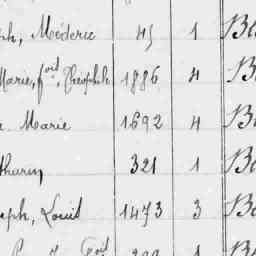 ph, Médéric 45 1 B
Marie, fois, Théophile 1886 4 B
Marie 1692 4 B
321 1 B
seph, Louis 1473 3 B